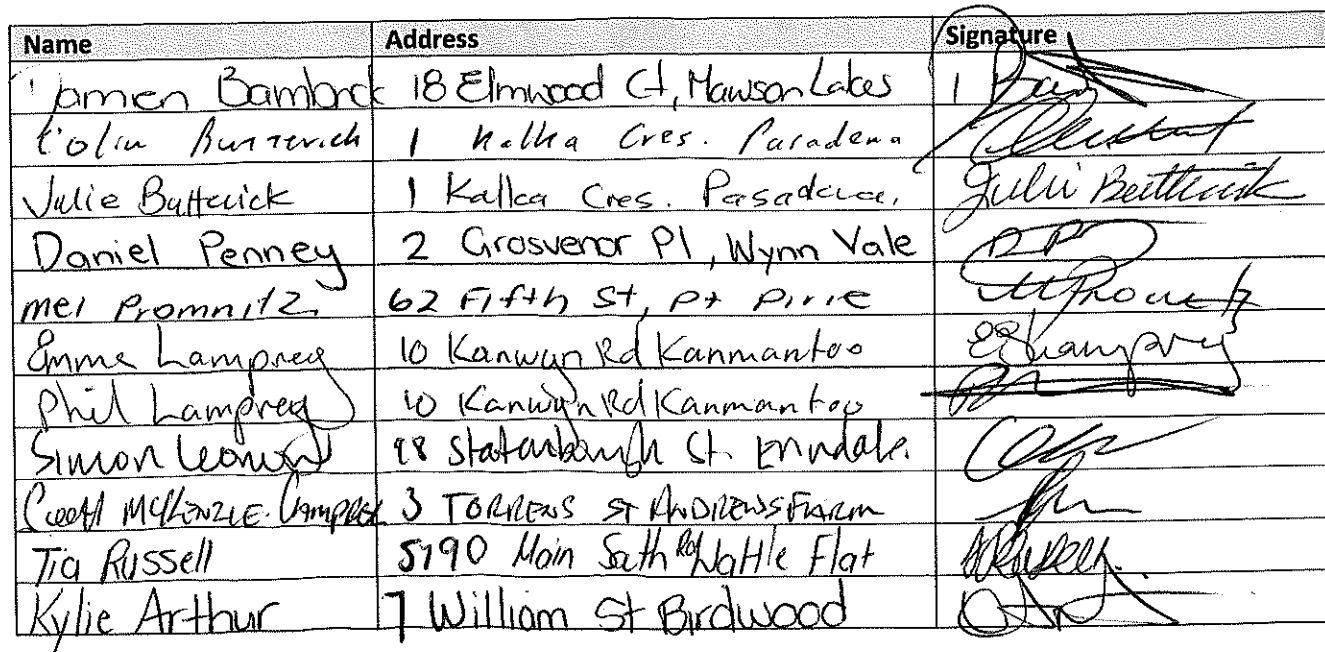 Name Address Signature
Bambrick 18 Elmwood Ct, Mawson Lakes
Colin Butterick 1 Kalka Cres. Pasadena
Julie Butterick 1 Kalka Cres. Pasadena. Julie Butterick
Daniel Penney 2 Grosvenor Pl, Wynn Vale DP
Mel Promnitz. 62 Fifth St, Pt Pirie MPromnitz
Emma Lamprey 10 Kanwyn Rd Kanmantoo Lamprey
Phil Lamprey 10 Kanwyn Rd Kanmantoo
Simon St. Erindale.
McKENZIE 3 TORRENS ST ANDREWS FARM
Tia Russell 5190 Main South Rd Wattle Flat
Kylie Arthur 7 William St Birdwood